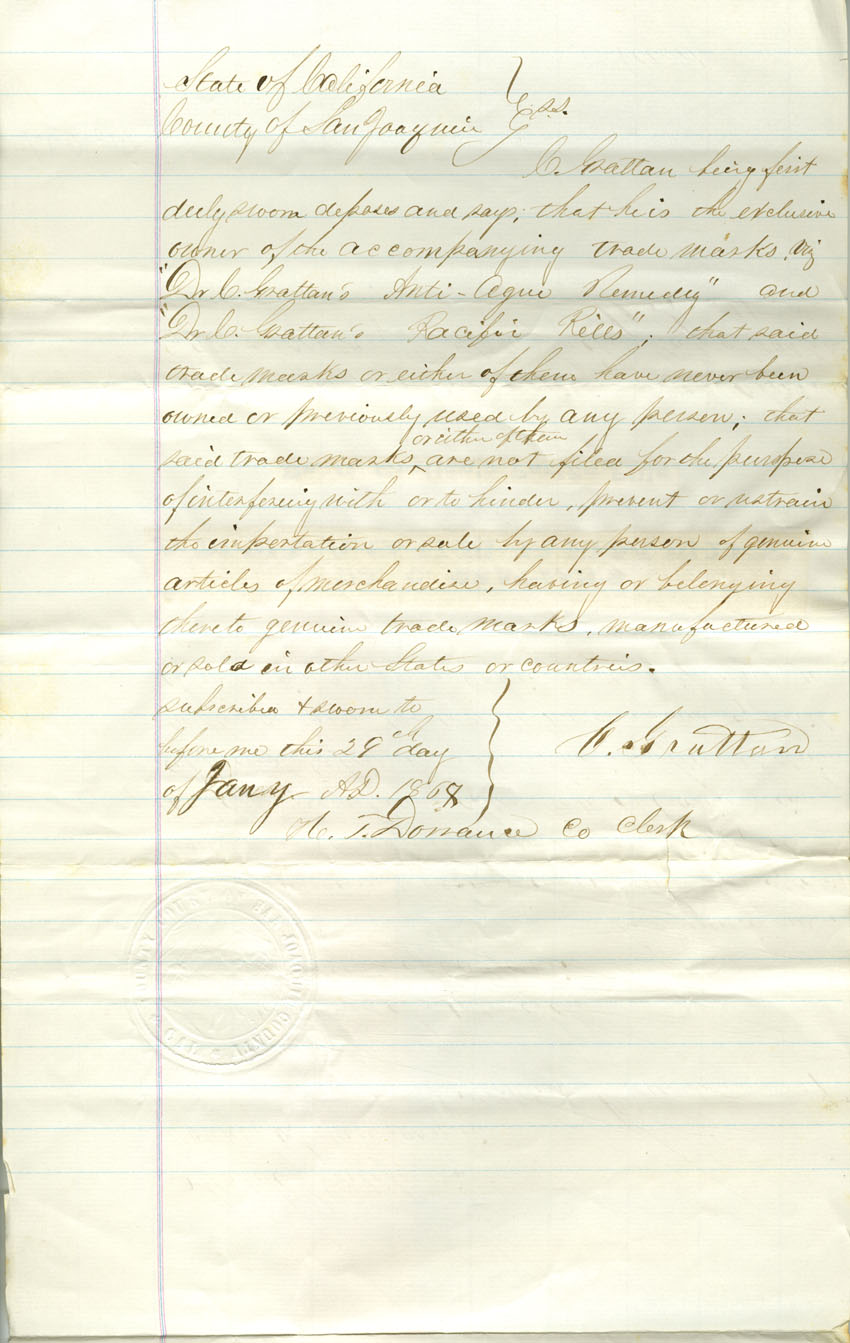 State of California
County of San Joaquin } ss.
C. Grattan being first
duly sworn deposes and says; that he is the exclusive
owner of the accompanying trade marks, viz
"Dr C. Grattan's Anti-Ague Remedy" and
"Dr. C. Grattan's Pacific Pills"; that said
trade marks or either of them have never been
owned or previously used by any person; that
or either of them
said trade marks ^ are not filed for the purpose
of interfering with or to hinder, prevent or restrain
the importation or sale by any person of genuine
articles of merchandise, having or belonging
thereto genuine trade marks, manufactured
or sold in other States or countries.
subscribed & sworn to
before me this 29th day
of Jany A.D. 1868
C. Grattan
H. T. Dorrance Co Clerk
COUNTY COURT OF SAN JOAQUIN COUNTY CAL